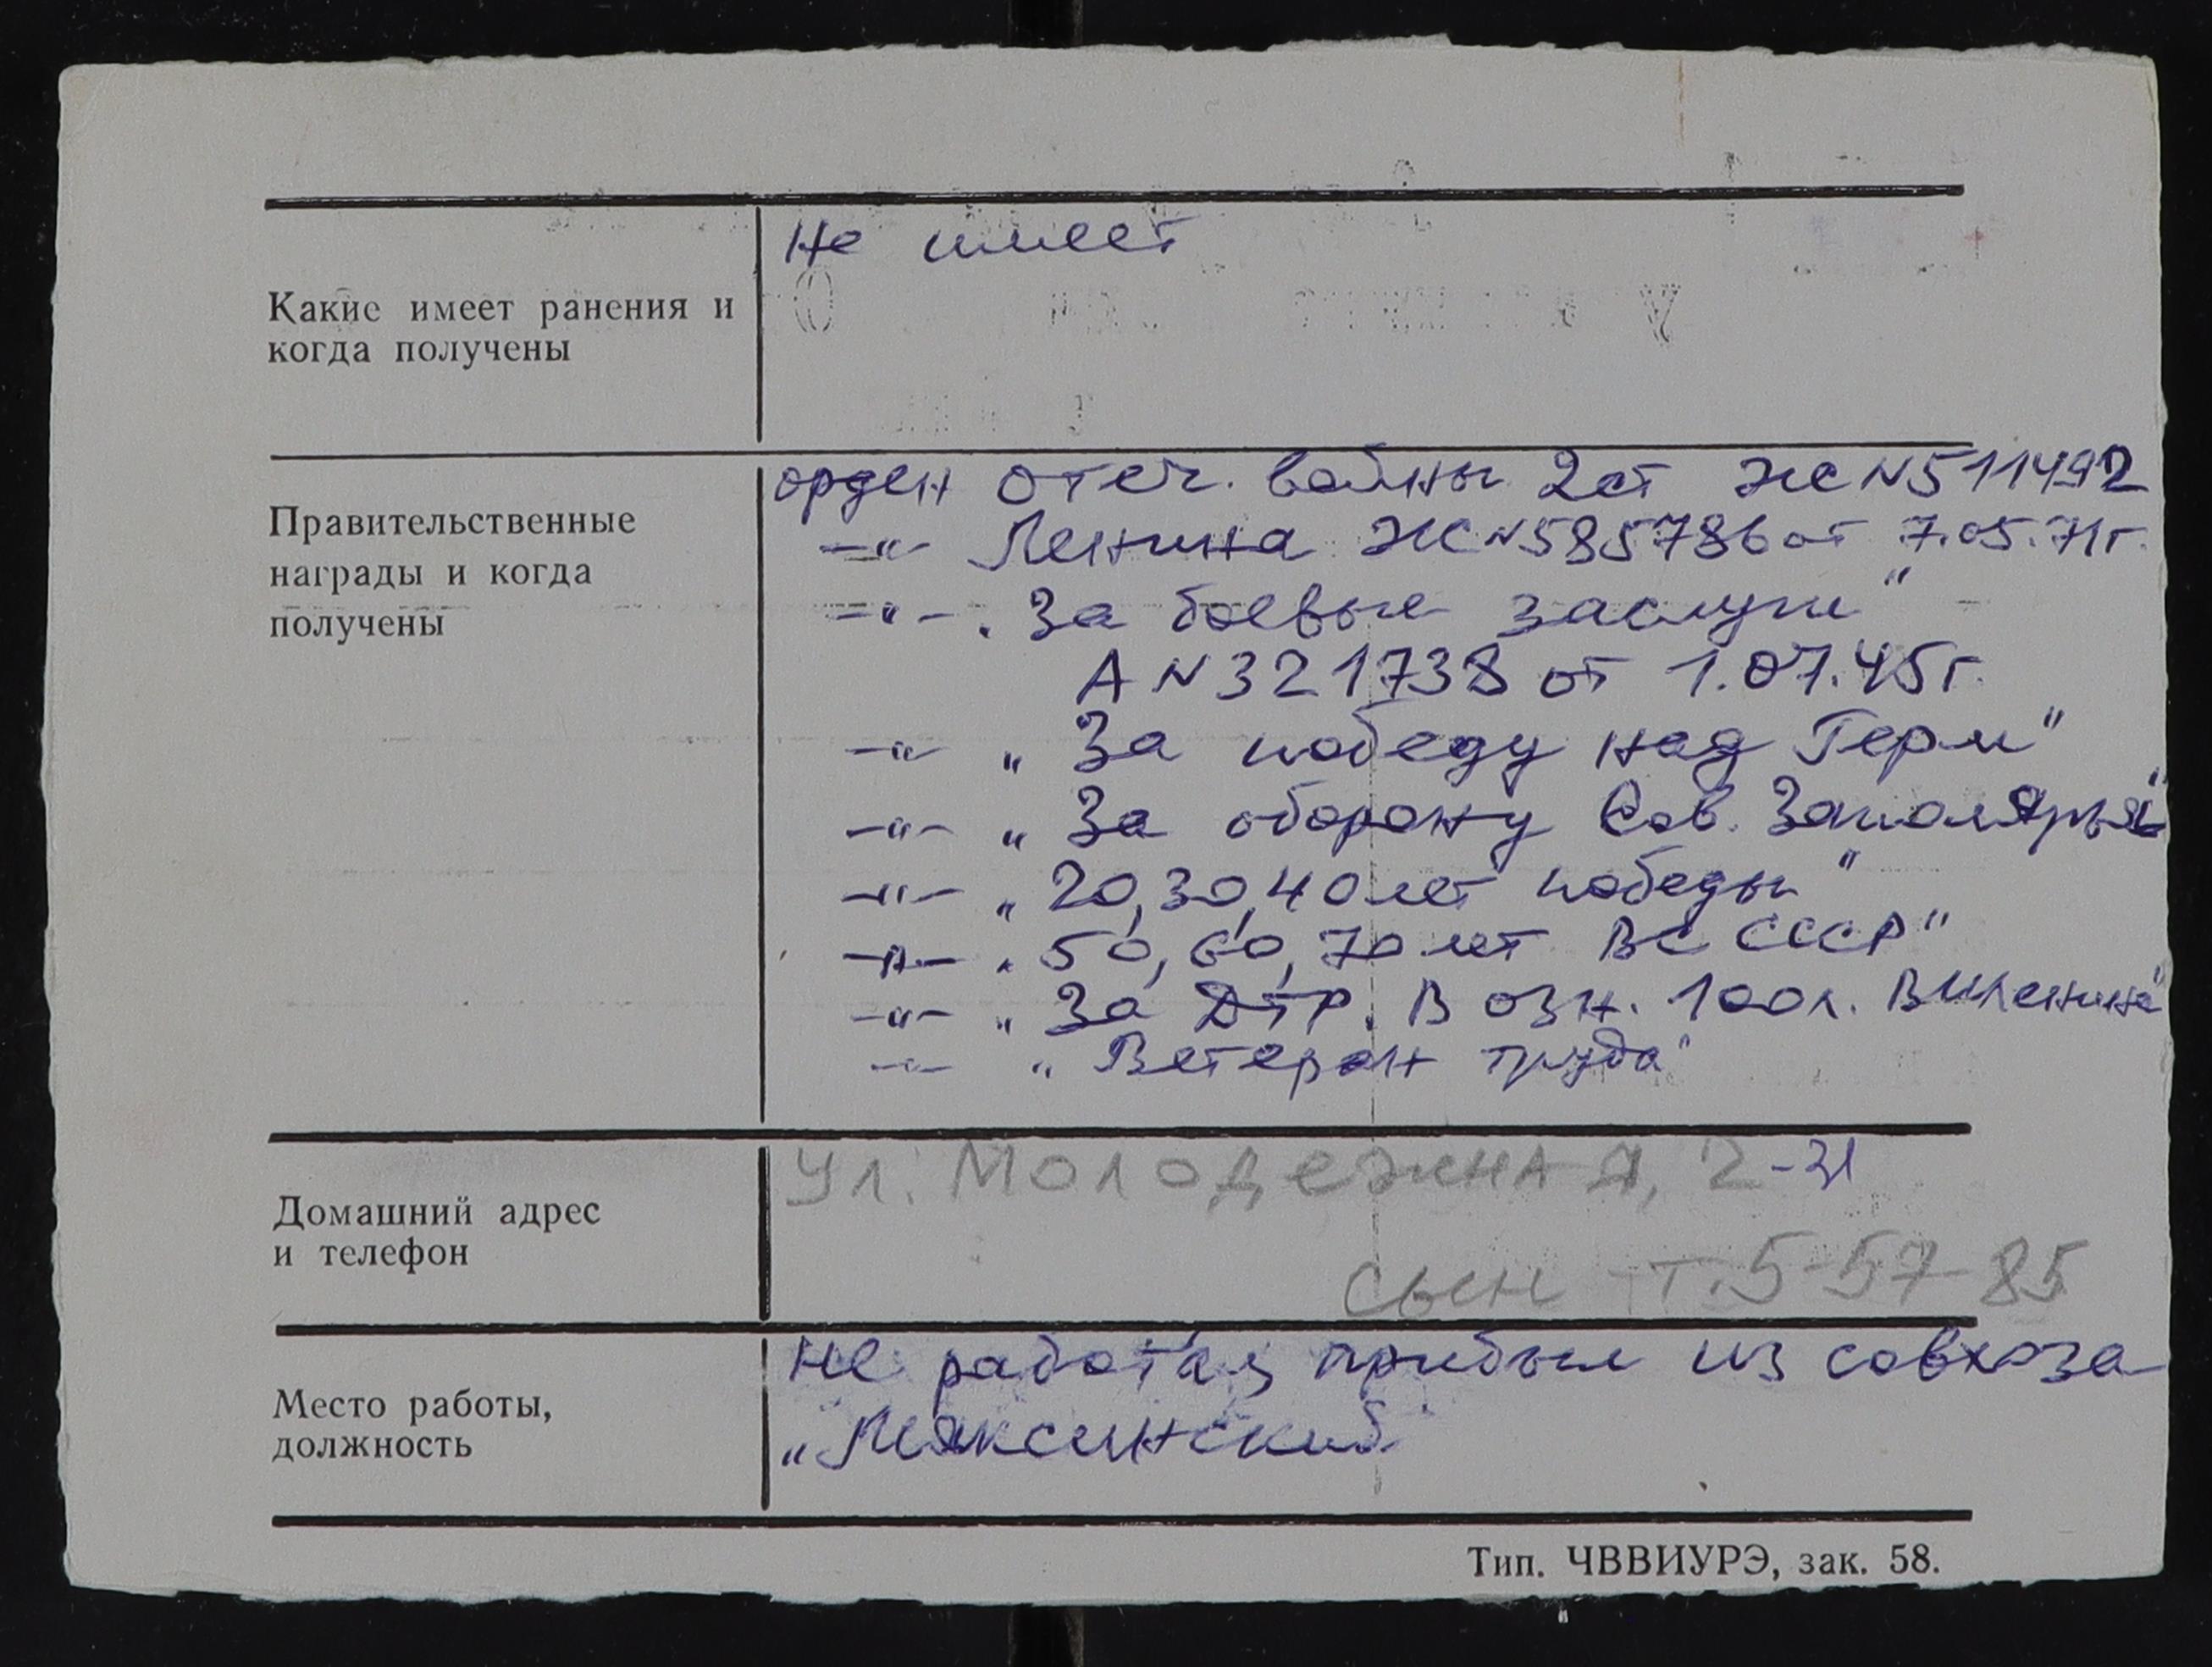 Не имеет
Какие имеет ранения и
когда получены
орден Отеч. войны 2 ст ЖС N 511492
Правительственные
награды и когда
получены
—"— Ленина ЖС N 585786 от 7.05.71 г.
—"— „За боевые заслуги"
А N 321738 от 1.07.45 г.
—"— „За победу над Герм"
—"— „За оборону Сов. Заполярья"
—"— „20, 30, 40 лет победы"
—"— „50, 60, 70 лет ВС СССР"
—"— „За Д тр. В озн. 100 л. ВИЛенина"
—"— „Ветеран труда"
Домашний адрес
и телефон
Ул. Молодежная, 2-31
сын т. 5-57-85
Место работы,
должность
Не работ прибыл из совхоза
„Мяксинский"
Тип. ЧВВИУРЭ, зак. 58.